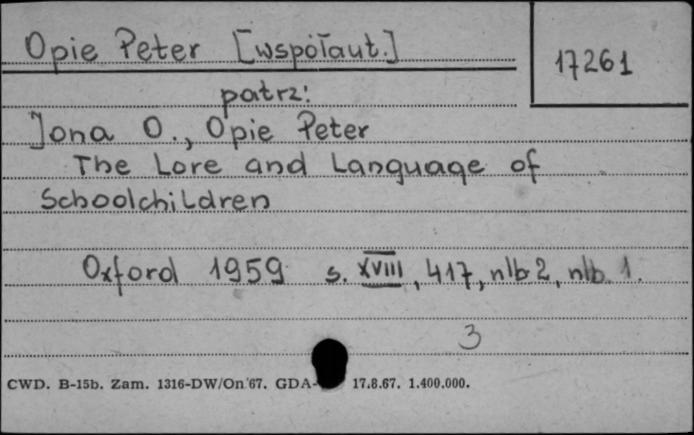 Opie Peter [współaut.]
17261
patrz:
Jona O., Opie Peter
The Lore and Language of
Schoolchildren
Oxford 1959 s. XVIII, 417, nlb 2, nlb. 1.
3
CWD. B-15b. Zam. 1316-DW/On'67. GDA- 17.8.67. 1.400.000.